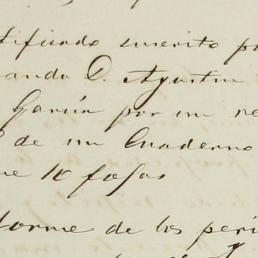 tificado suscrito po
anda D. Agustin
Garcia por un re
de un Cuaderno
ue 10 fojas
forme de los peri